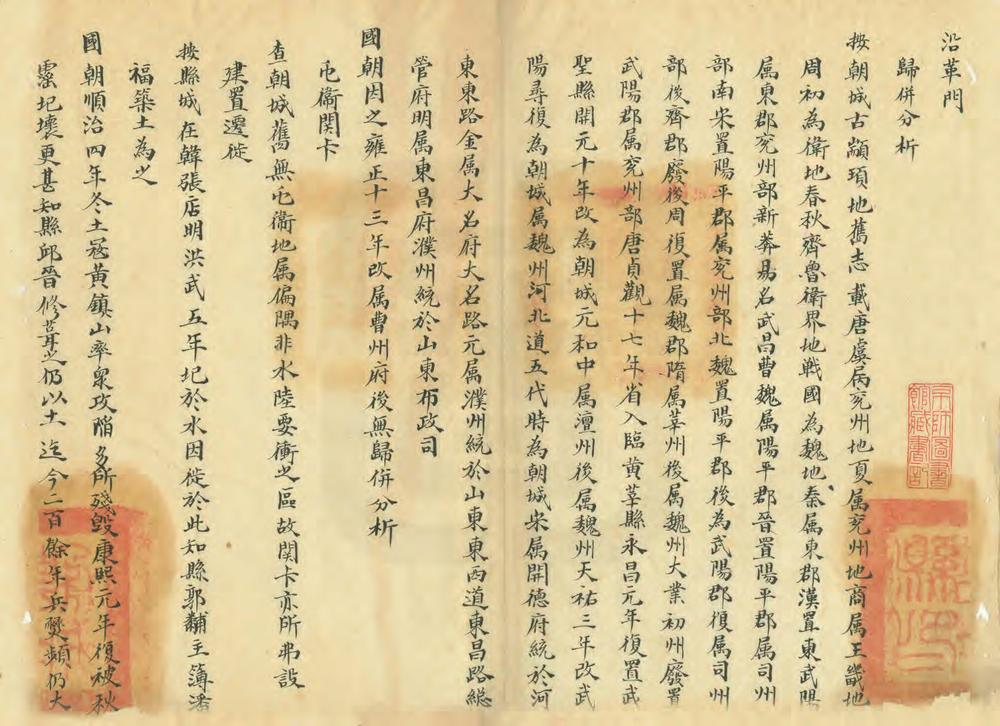 沿革門
歸併分析
按朝城古顓頊地舊志載唐虞屬兖州地夏属兖州地商属王畿地
周初為衛地春秋齊魯衛界地戰國為魏地秦属東郡漢置東武陽
属東郡兖州部新莽易名武昌曹魏属陽平郡晉置陽平郡属司州
部南宋置陽平郡属兖州部北魏置陽平郡後為武陽郡復属司州
部後齊郡廢後周復置属魏郡隋属莘州後属魏州大業初州廢置
武陽郡属兖州部唐貞觀十七年省入臨黄莘縣永昌元年復置武
聖縣開元十年改為朝城元和中属澶州後属魏州天祐三年改武
陽尋復為朝城属魏州河北道五代時為朝城宋属開德府統於河
東東路金属大名府大名路元属濮州統於山東東西道東昌路總
管府明属東昌府濮州統於山東布政司
國朝因之雍正十三年改属曹州府後無歸併分析
屯衞関卡
查朝城舊無屯衞地属偏隅非水陸要衝之區故関卡亦所弗設
建置遷徙
按縣城在韓張店明洪武五年圮於水因徙於此知縣郭黼主簿潘
福築土為之
國朝順治四年冬土冦黄鎮山率衆攻陷多所殘毀康熙元年復被秋
霪圮壞更甚知縣邱晉修葺之仍以土迄今二百餘年兵燹頻仍大
宗師圖書館藏書記
縣印